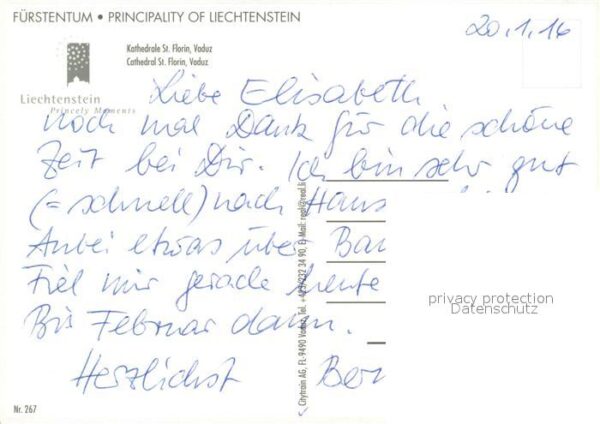 FÜRSTENTUM • PRINCIPALITY OF LIECHTENSTEIN
20.1.16
Kathedrale St. Florin, Vaduz
Cathedral St. Florin, Vaduz
Liechtenstein
Princely Moments
Liebe Elisabeth
noch mal Dank für die schöne
Zeit bei Dir. Ich bin sehr gut
(= schnell) nach Haus
Anbei etwas über Bau
Fiel mir gerade heute
Bis Februar dann.
Herzlichst Ber
privacy protection
Datenschutz
Citytrain AG, FL-9490 Vaduz, Tel. +423/232 34 90, E-Mail: regl@reol.li
Nr. 267